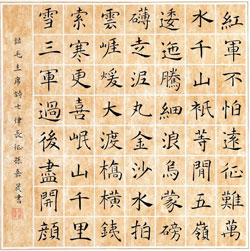 紅軍不怕遠征難萬
水千山衹等閒五嶺
逶迤騰細浪烏蒙磅
礴走泥丸金沙水拍
雲崕煖大渡橋橫鐵
索寒更喜岷山千里
雪三軍過後盡開顏
毛主席詩七律長征孫嘉書